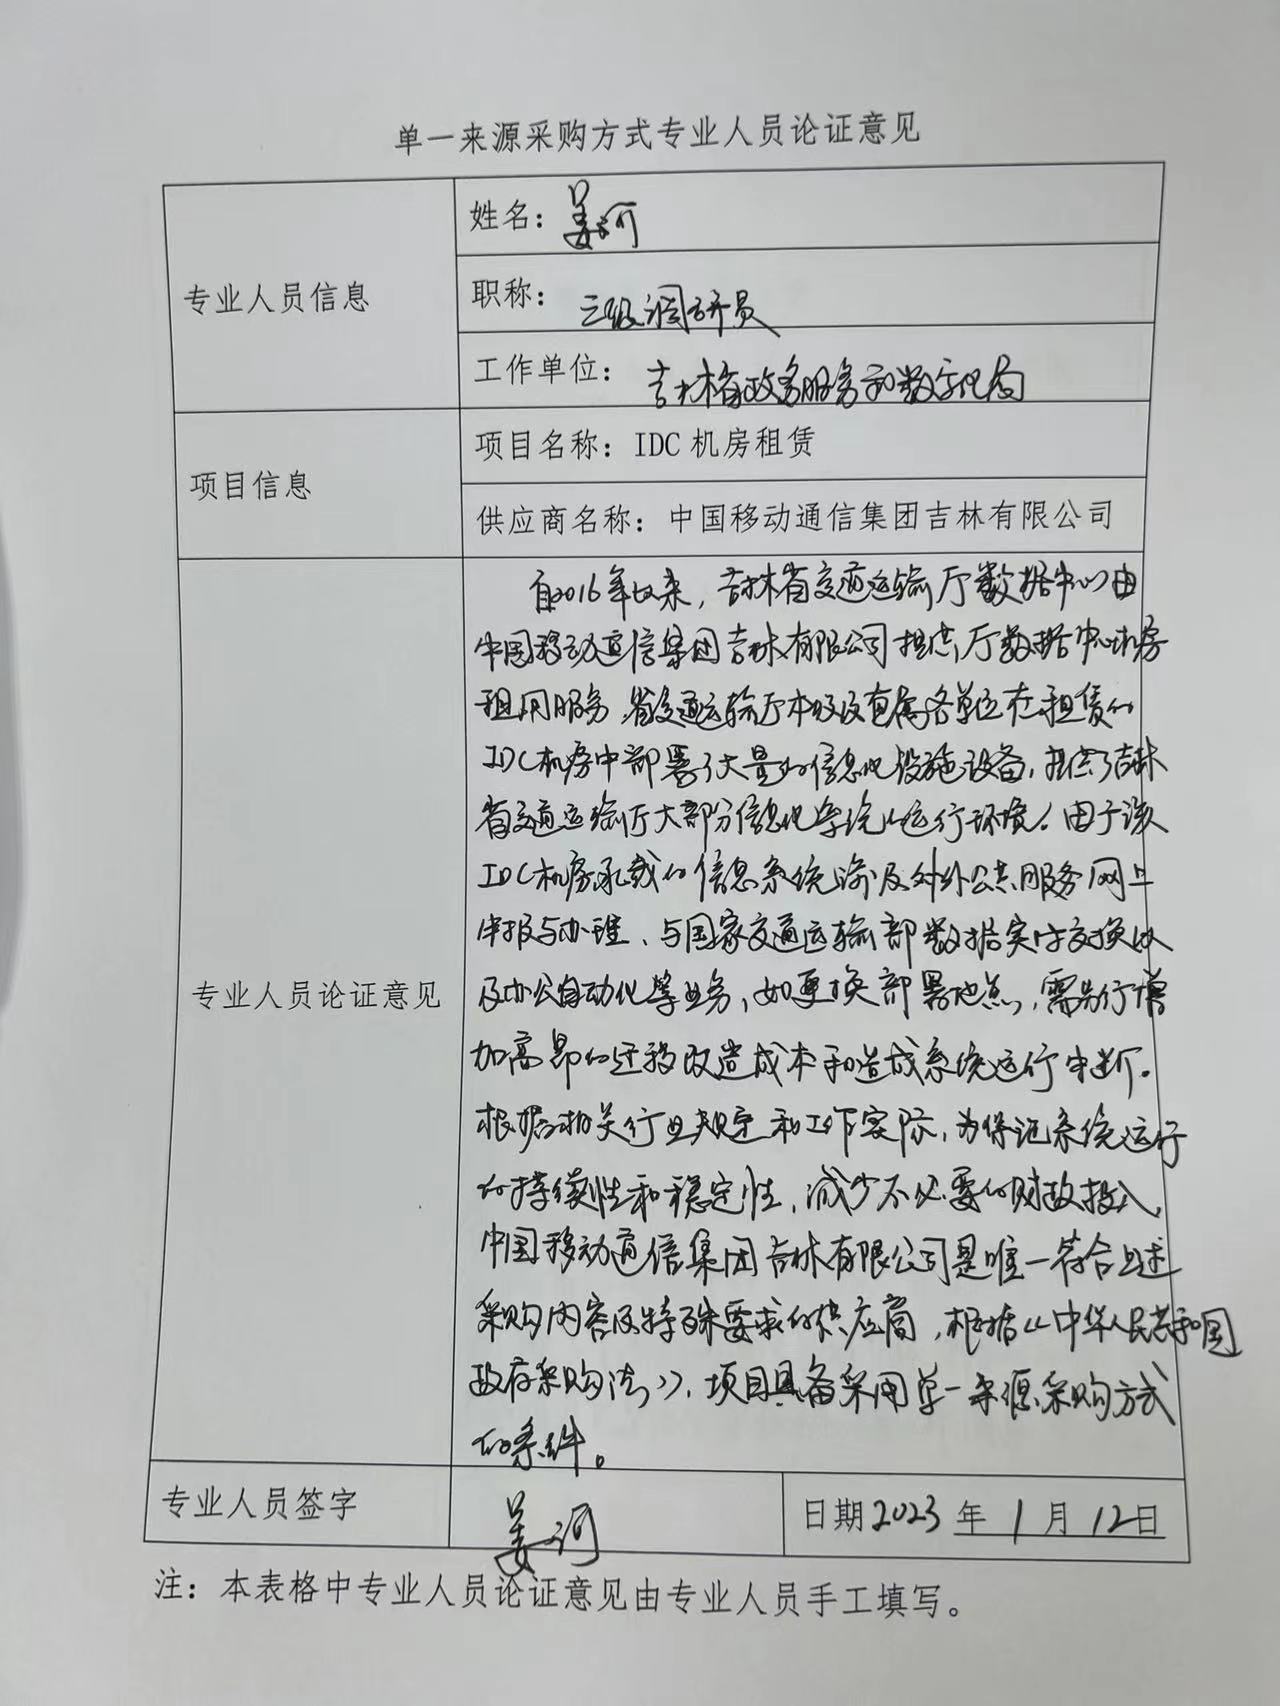 单一来源采购方式专业人员论证意见
专业人员信息
姓名：姜河
职称：三级调研员
工作单位：吉林省政务服务和数字化局
项目信息
项目名称：IDC 机房租赁
供应商名称：中国移动通信集团吉林有限公司
专业人员论证意见
自2016年以来，吉林省交通运输厅数据中心由
中国移动通信集团吉林有限公司提供厅数据中心机房
租用服务，省交通运输厅本级及直属各单位在租赁的
IDC机房中部署了大量的信息化设施设备，提供了吉林
省交通运输厅大部分信息化系统的运行环境。由于该
IDC机房承载的信息系统涉及对外公共服务网上
申报与办理、与国家交通运输部数据实时交换以
及办公自动化等业务，如更换部署地点，需先行增
加高昂的迁移改造成本和造成系统运行中断。
根据相关行业规定和工作实际，为保证系统运行
的持续性和稳定性，减少不必要的财政投入，
中国移动通信集团吉林有限公司是唯一符合上述
采购内容及特殊要求的供应商，根据《中华人民共和国
政府采购法》，项目具备采用单一来源采购方式
的条件。
专业人员签字
姜河
日期2023年1月12日
注：本表格中专业人员论证意见由专业人员手工填写。